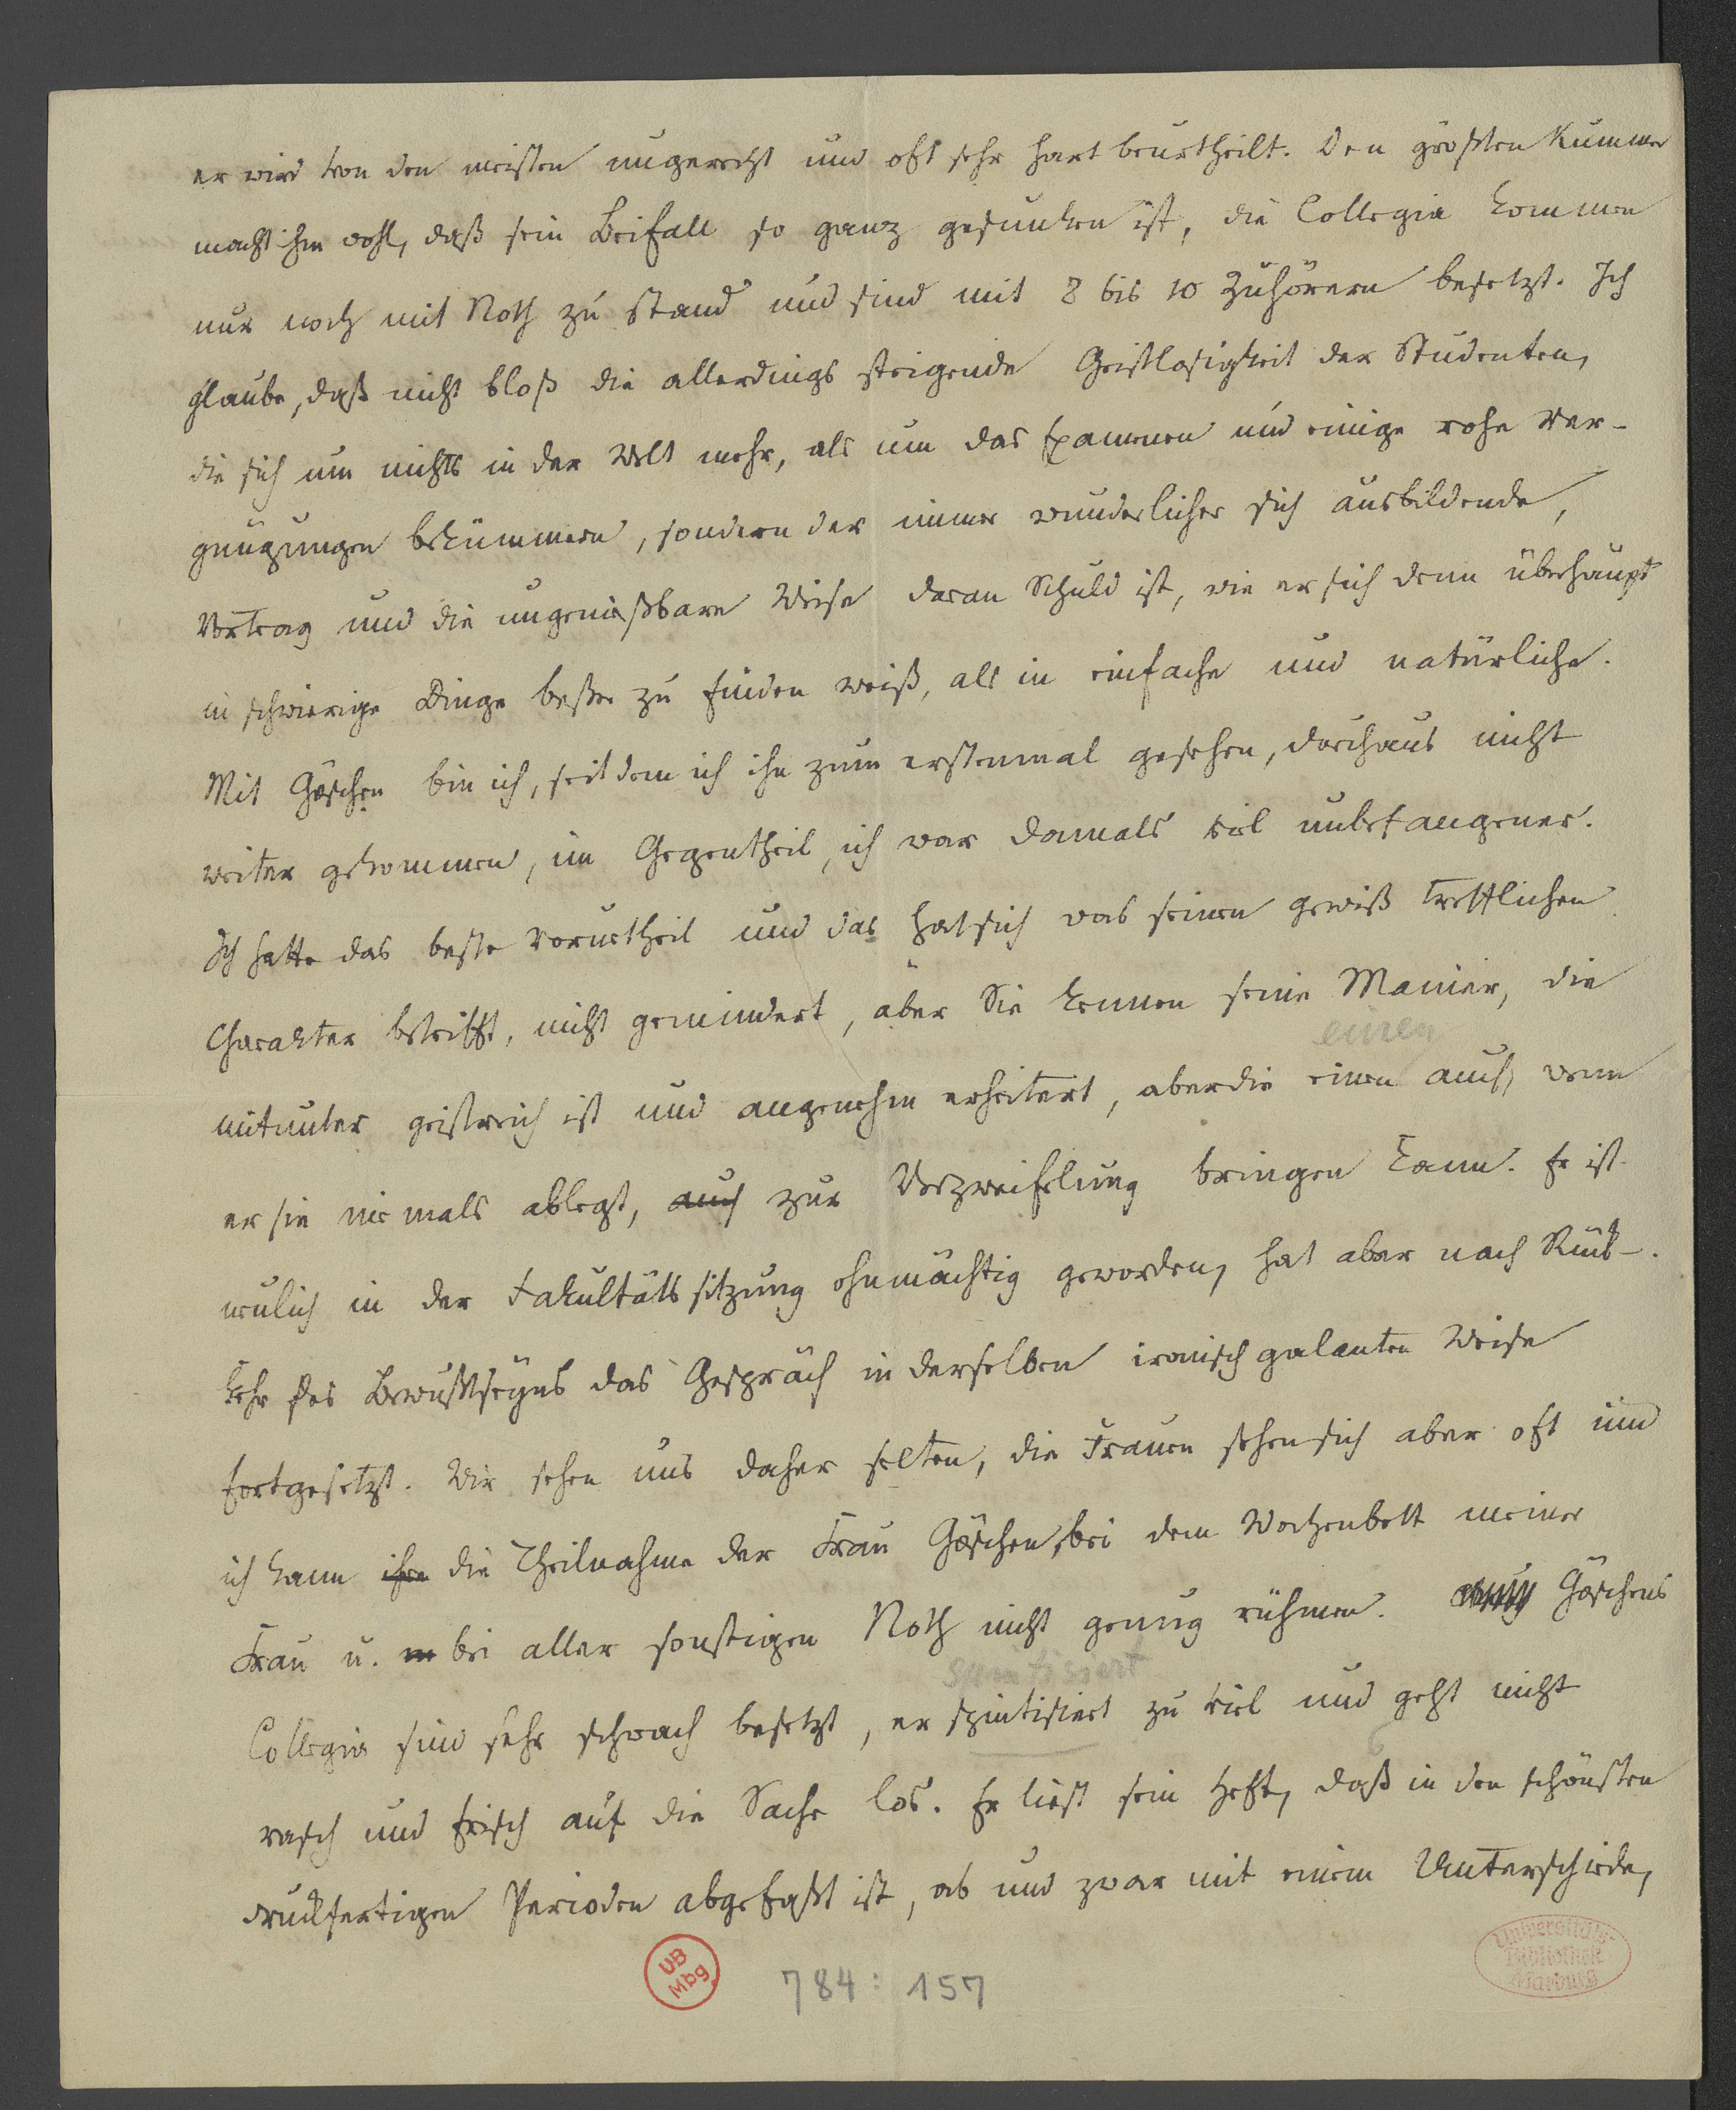 er wird von den meisten ungerecht und oft sehr hart beurtheilt. Den größten Kummer
macht ihm wohl, daß sein Beifall so ganz gesunken ist, die Collegia kommen
nur noch mit Noth zu stand und sind mit 8 bis 10 Zuhörern besetzt. Ich
glaube, daß nicht bloß die allerdings steigende Geistlosigkeit der Studenten,
die sich um nichts in der Welt mehr, als um das Examen und einige rohe Ver-
gnügungen bekümmern, sondern der immer wunderlicher sich ausbildende,
Vortrag und die ungenießbare Weise daran Schuld ist, wie er sich denn überhaupt
in schwierige Dinge besser zu finden weiß, als in einfache und natürliche.
Mit Göschen bin ich, seitdem ich ihn zum erstenmal gesehen, durchaus nicht
weiter gekommen, im Gegentheil, ich war damals viel unbefangener.
Ich hatte das beste Vorurtheil und das hat sich was seinen gewiß trefflichen
Charakter betrifft, nicht gemindert, aber Sie kennen seine Manier, die
einen
mitunter geistreich ist und angenehm erheitert, aber die einen auch, wenn
er sie niemals ablegt, auch zur Verzweiflung bringen kann. Er ist
neulich in der Fakultätssitzung ohnmächtig geworden, hat aber nach Rück-
kehr des Bewußtseyns das Gespräch in derselben ironisch galanten Weise
fortgesetzt. Wir sehen uns daher selten, die Frauen sehen sich aber oft und
ich kann ihre die Theilnahme der Frau Göschen, bei dem Wochenbett meiner
Frau u. m bei aller sonstigen Noth nicht genug rühmen. Göschens
spintisiert
Collegia sind sehr schwach besetzt, er spintisiert zu viel und geht nicht
rasch und frisch auf die Sache los. Er liest sein Heft, daß in den schönsten
druckfertigen Perioden abgefaßt ist, ab und zwar mit einem Unterschiede,
UB
Mbg.
784: 157
Universitäts-
Bibliothek
Marburg